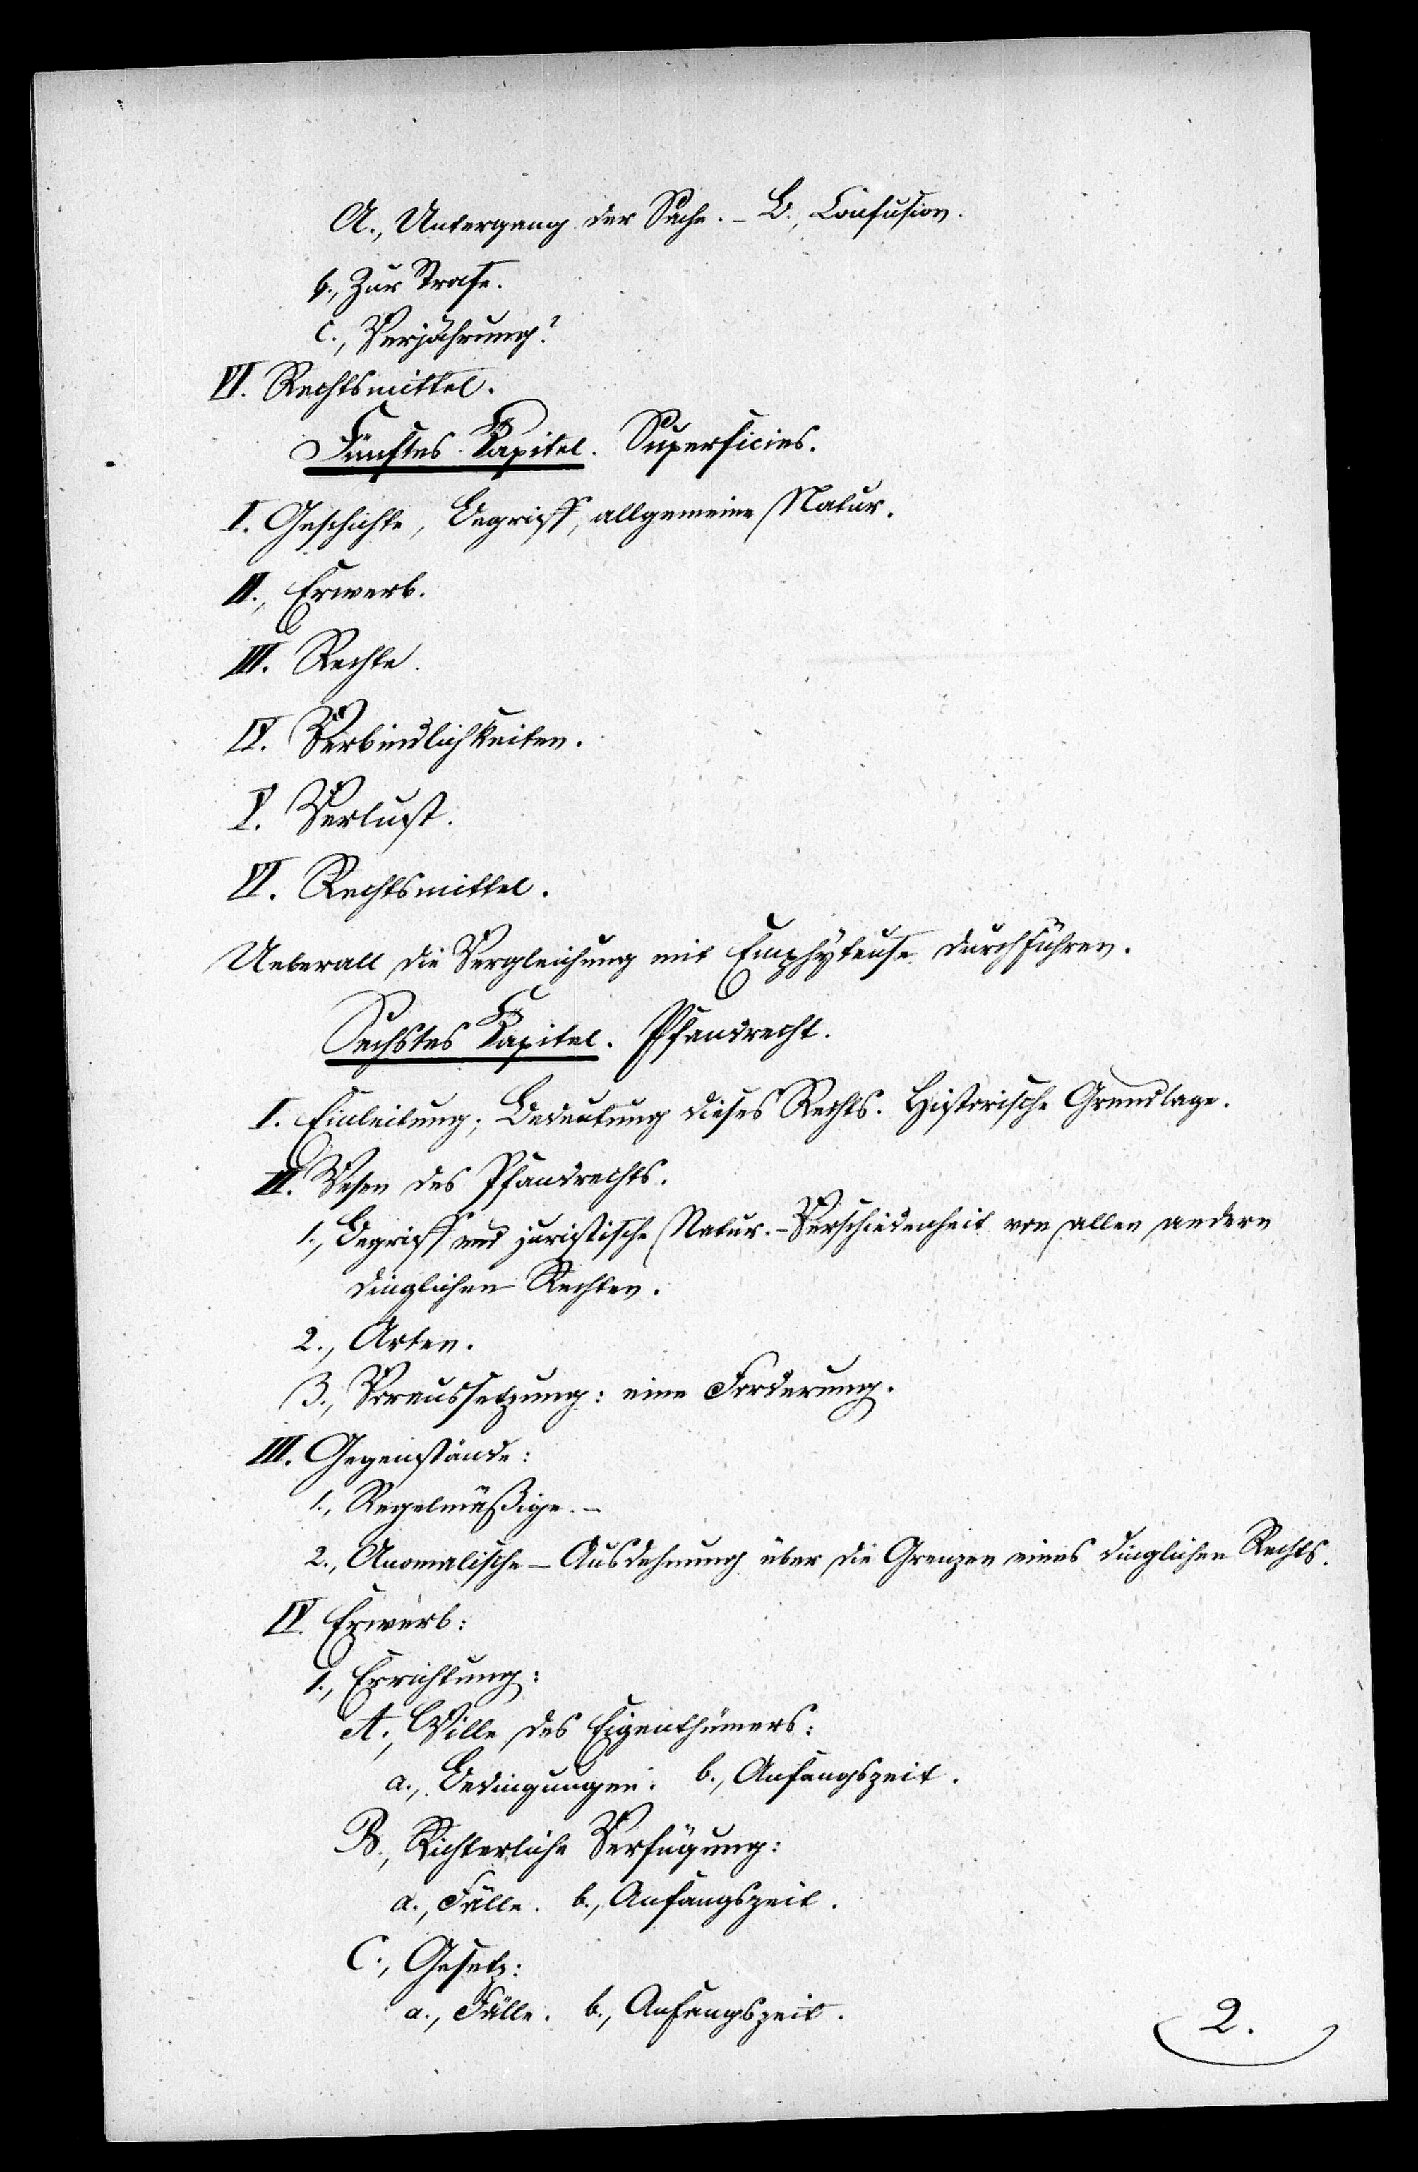 A., Untergang der Sache. – B., Confusion.
b., Zur Strafe.
c., Verjährung?
VI. Rechtsmittel.
Fünftes Kapitel. Superficies.
I. Geschichte, Begriff, allgemeine Natur.
II., Erwerb.
III. Rechte.
IV. Verbindlichkeiten.
V. Verlust.
VI. Rechtsmittel.
Ueberall die Vergleichung mit Emphyteuse durchführen.
Sechstes Kapitel. Pfandrecht.
I. Einleitung; Bedeutung dieses Rechts. Historische Grundlage.
II. Wesen des Pfandrechts.
1., Begriff und juristische Natur. – Verschiedenheit von allen andern
dinglichen Rechten.
2., Arten.
3., Voraussetzung: eine Forderung.
III. Gegenstände:
1., Regelmäßige. –
2., Anomalische – Ausdehnung über die Grenzen eines dinglichen Rechts.
IV. Erwerb:
1., Errichtung:
A., Wille des Eigenthümers:
a., Bedingungen. b., Anfangszeit.
B., Richterliche Verfügung:
a., Fälle. b., Anfangszeit.
C., Gesetz:
a., Fälle. b., Anfangszeit.
2.